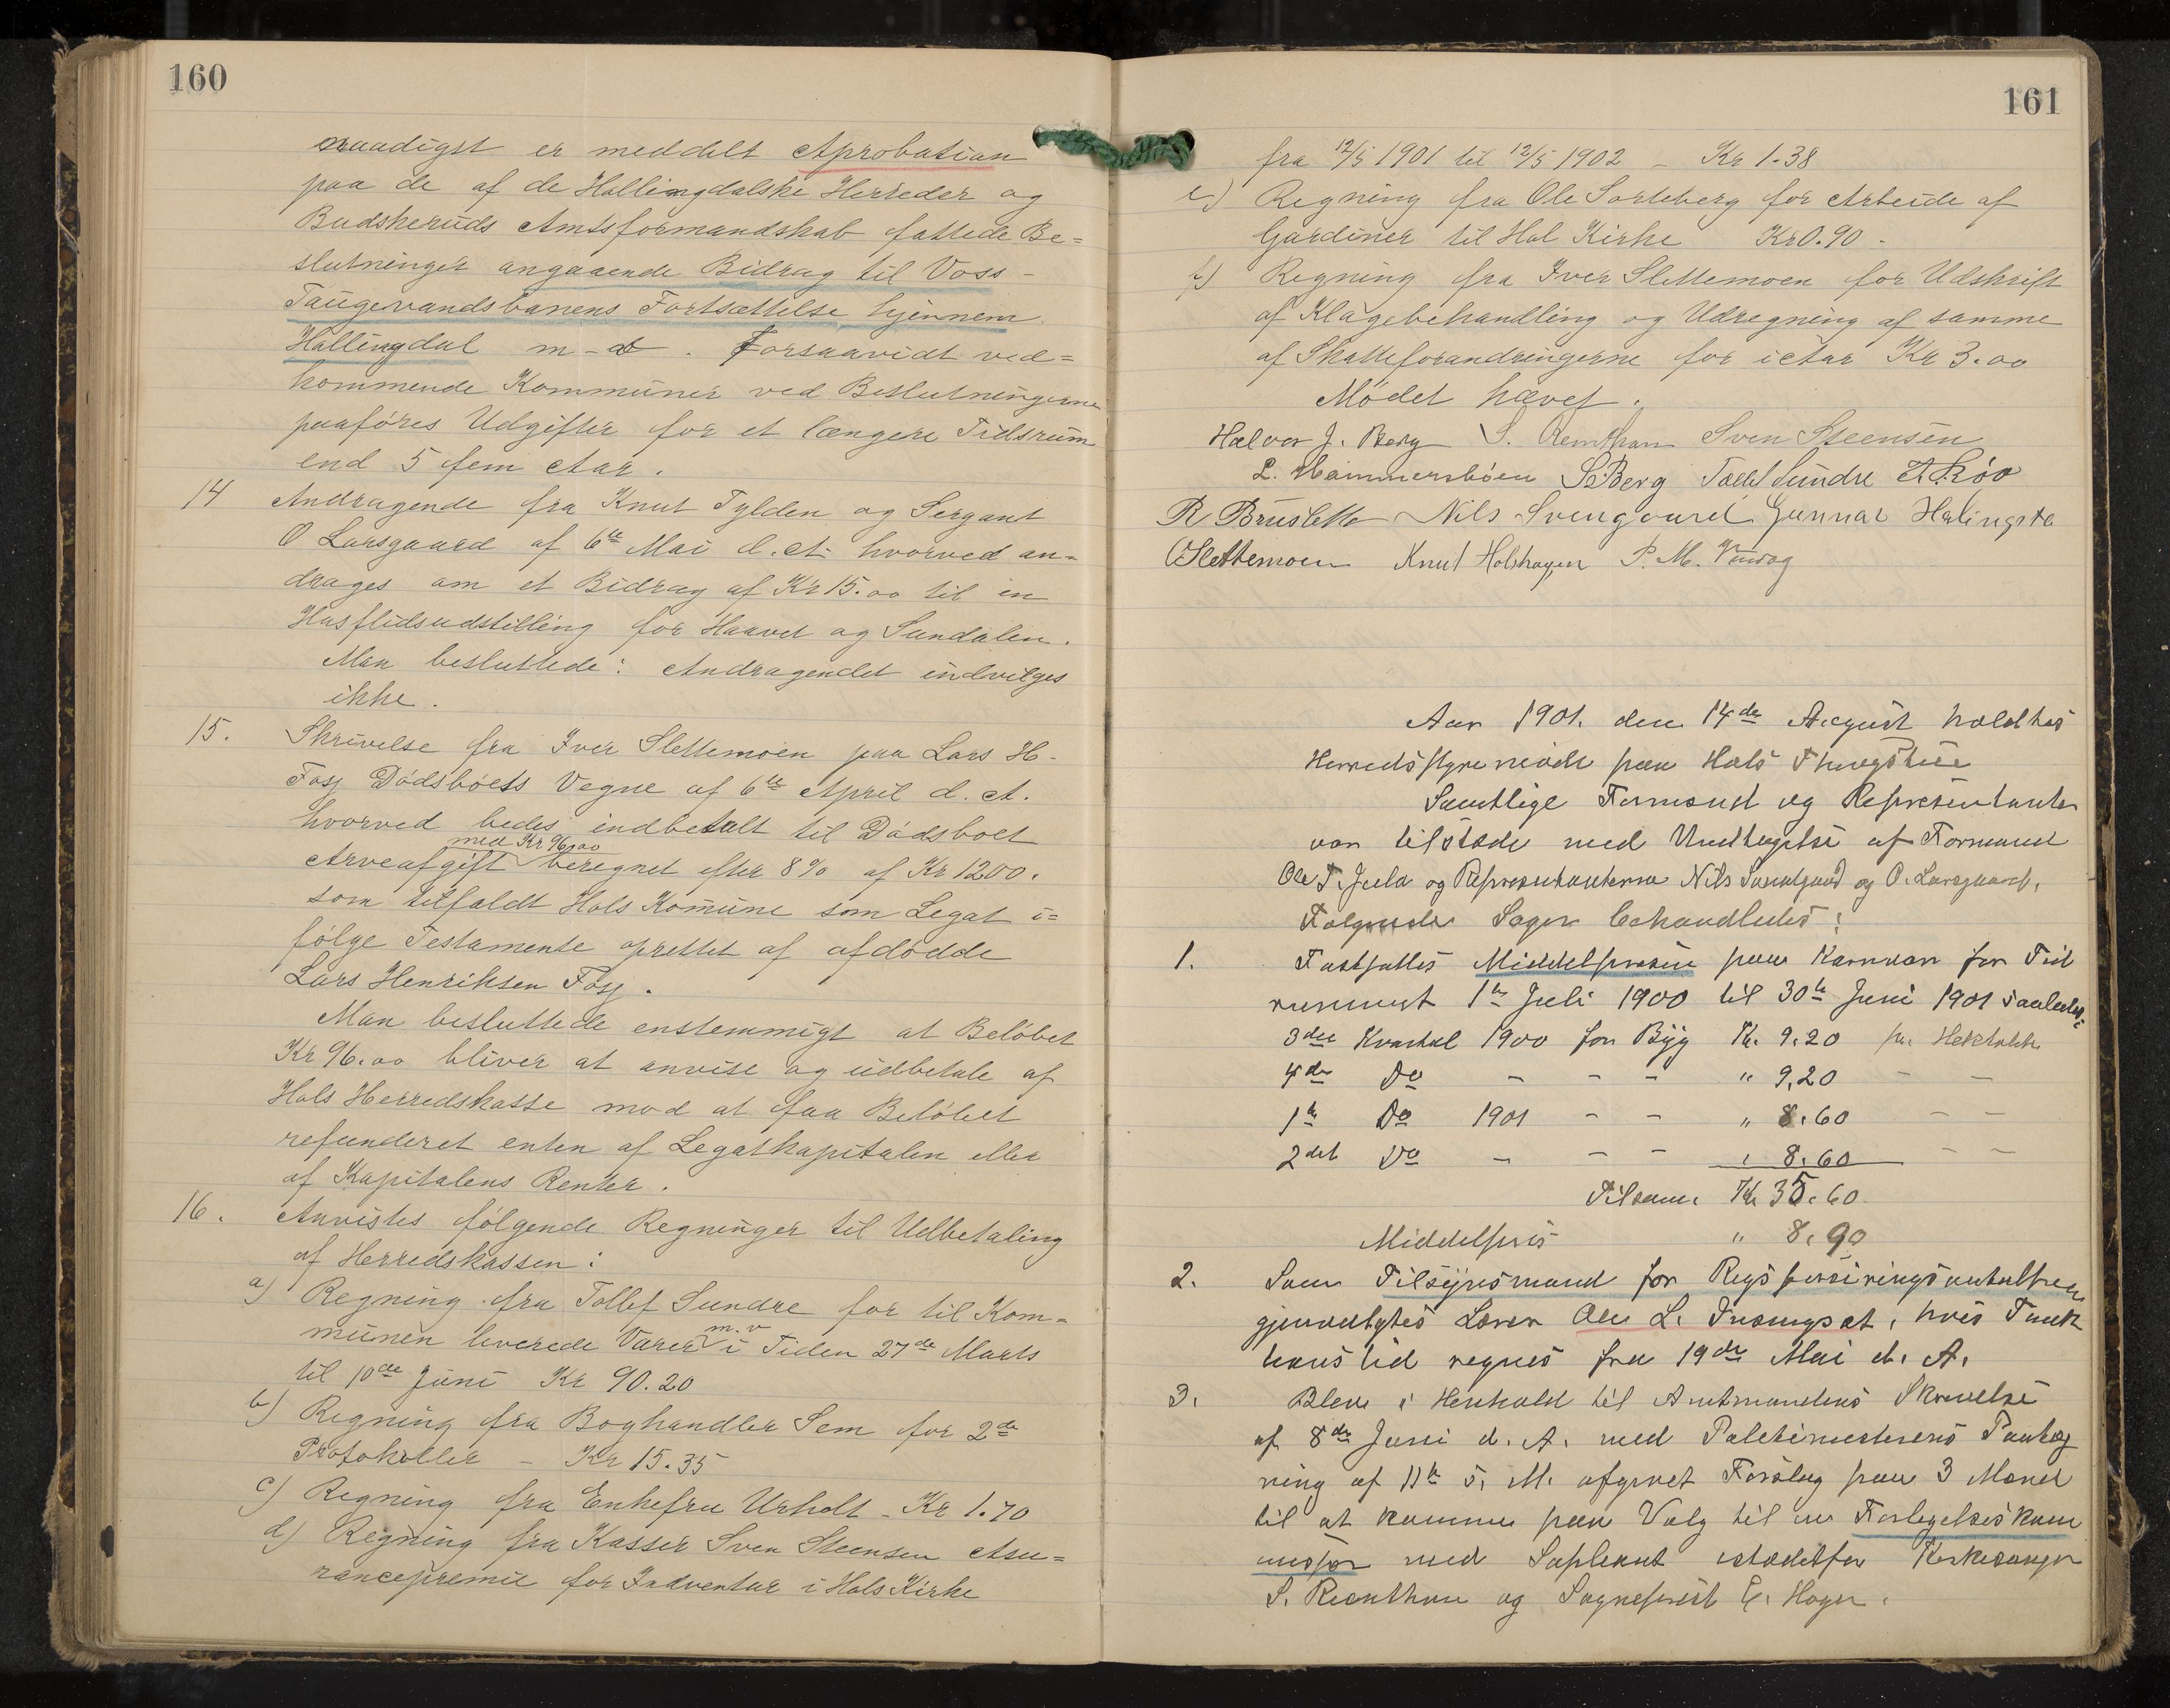 160
naadigst er meddelt Aprobation
paa de af de Hallingdalske Herreder og
Budskeruds Amtsformandskab fattede Be=
slutninger angaaende Bidrag til Voss-
Taugevandsbanens Fortsættelse gjennem
Hallingdal m-a. Forsaavidt ved=
kommende Kommuner ved Beslutningerne
paaføres Udgifter for et længere Tidsrum
end 5 fem Aar.
14 Andragende fra Knut Tylden og Sergant
O Larsgaard af 6te Mai d.A. hvorved an=
drages om et Bidrag af Kr 15.00 til en
Husflidsudstilling for Haavet og Sundalen.
Man besluttede: Andragendet indvilges
ikke.
15. Skrivelse fra Iver Slettemoen paa Lars H-
Fosj Dødsboets Vegne af 6te April d. A.
hvorved bedes indbetalt til Dødsboet
med Kr 96.00
Arveafgift beregnet efter 8% af Kr 1200.
som tilfaldt Hols Komune som Legat i=
følge Testamente oprettet af afdødde
Lars Henriksen Fosj.
Man besluttede enstemmigt at Beløbet
Kr 96.00 bliver at anvise og udbetale af
Hols Herredskasse mod at faa Beløbet
refunderet enten af Legatkapitalen eller
af Kapitalens Renter.
16. Anvistes følgende Regninger til Udbetaling
af Herredskassen:
a) Regning fra Tollef Sundre for til Kom=
m.v
munen leverede Varer i Tiden 27de Marts
til 10de Juni Kr 90.20
b) Regning fra Boghandler Sem for 2de
Protokoller - Kr 15.35
c) Regning fra Enkefru Urholt - Kr 1.70
d) Regning fra Kasser Sven Steensen Asu=
rancepremie for Indventar i Hols Kirke
161
fra 12/5 1901 til 12/5 1902 - Kr 1.38
e) Regning fra Ole Sorteberg for Arbeide af
Gardiner til Hol Kirke Kr 0.90.
f) Regning fra Iver Slettemoen for Udskrift
af Klagebehandling og Udregning af samme
af Skatteforandringerne for i Aar Kr 3.00
Mødet hævet.
Halvor J. Berg S. Reinthon Sven Steensen
L. Hammersbøen S Berg Tollef Sundre
R Bruslette Nils Svengaard Gunnar
Slettemoen Knut Holshagen P. M.
Aar 1901. den 14de August holdtes
Herredsstyremøde paa Hols Thingstue
Samtlige Formænd og Repræsentanter
var tilstede med Undtagelse af Formand
Ole T. Jula og Repræsentanterne Nils Sundgaard og O. Larsgaard.
Følgende Sager behandledes:
1. Fastsattes Middelprisen paa Kornvarer for Tid
rummet 1te Juli 1900 til 30te Juni 1901 saaledes:
3die Kvartal 1900 for Byg Kr. 9.20 pr. Hektoliter
4de Do - - - " 9,20 - -
1te Do 1901 - - " 8.60 - -
2det Do - - - " 8.60 - -
Tilsam. Kr 35.60
Middelpris " 8.90
2. Som Tilsynsmand for Rigsforsikringsanstalten
gjenvalgtes Lærer Ole L. , hvis Funk
tionstid regnes fra 19de Mai d. A.
3. Blev i Henhold til Amtmandens Skrivelse
af 8de Juni d. A. med Politimesterens Paateg
ning af 11te s. M. afgivet Forslag paa 3 Mænd
til at komme paa Valg til en Forligelseskom
misjon med Supleant istedetfor Kirkesanger
S. Reinthon og Sogneprest E. Hager.